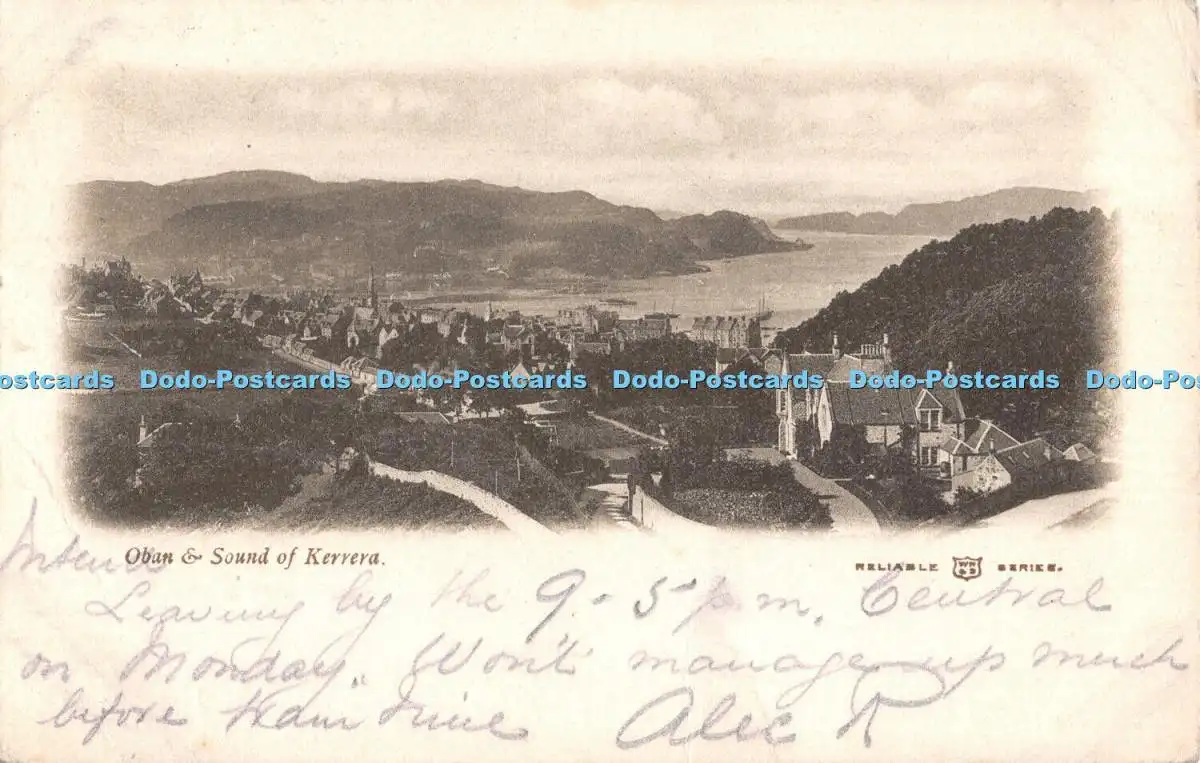 Dodo-Postcards Dodo-Postcards Dodo-Postcards Dodo-Postcards Dodo-Postcards Dodo-Post
Oban & Sound of Kerrera.
RELIABLE WR&S SERIES.
Leaving by the 9-5 pm. Central
on Monday. Won't manage up much
before train time Alec R